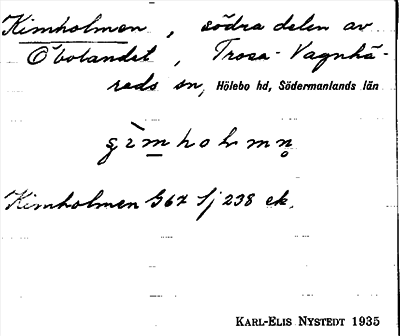 Kimholmen, södra delen av
Öbolandet, Trosa-Vagnhä-
rads sn, Hölebo hd, Södermanlands län
Kimholmen G67 Sj 238 ek.
KARL-ELIS NYSTEDT 1935